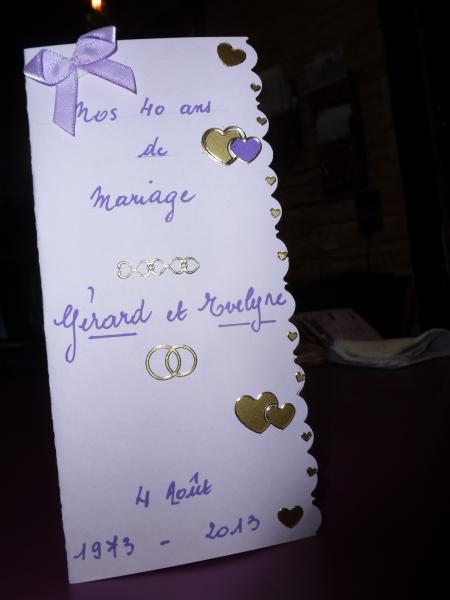 Nos 40 ans
de
Mariage
Gérard et Evelyne
4 Août
1973 - 2013